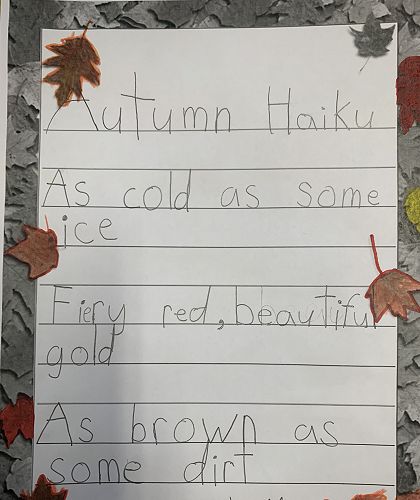 Autumn Haiku
As cold as some
ice
Fiery red, beautiful
gold
As brown as
some dirt